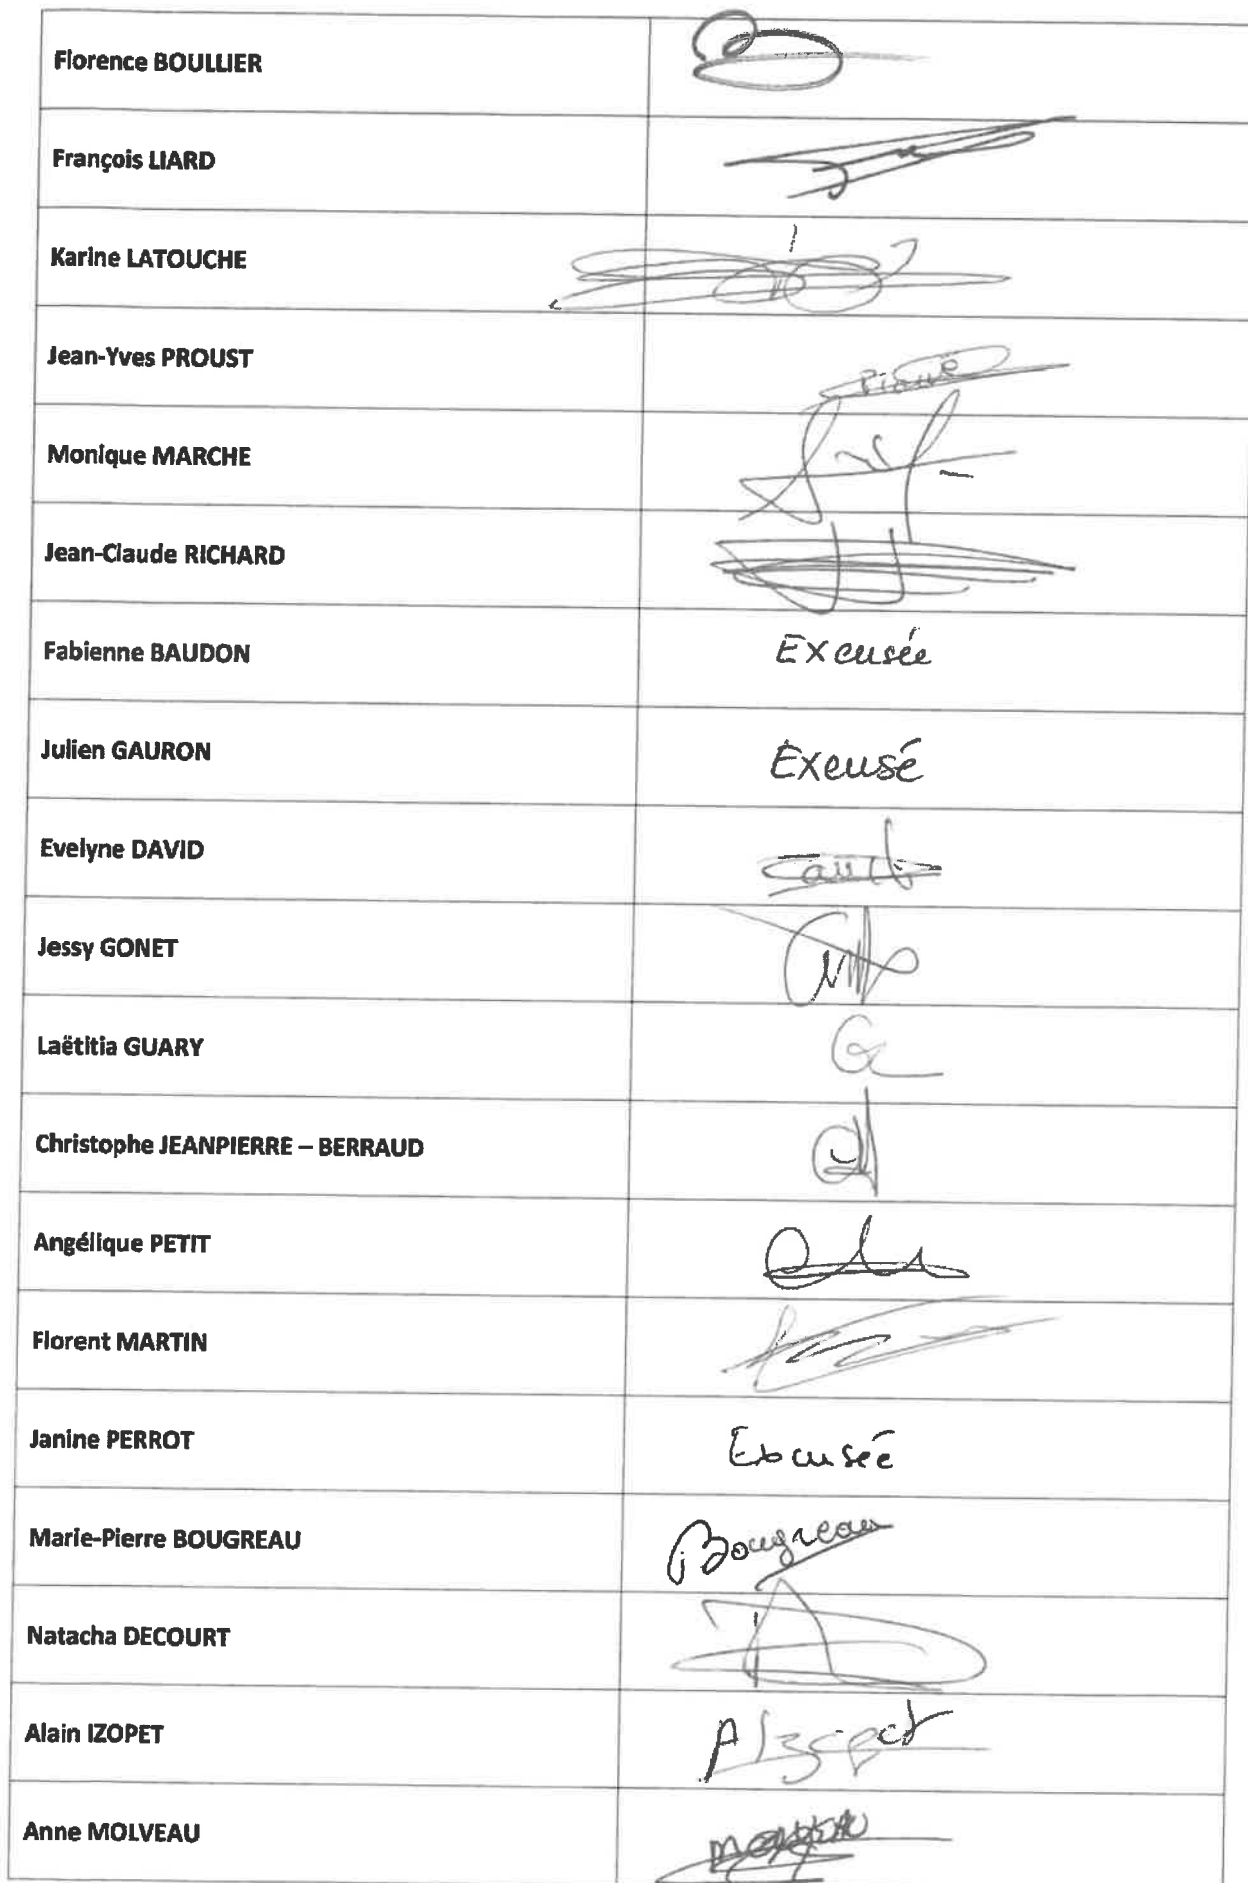 Florence BOULLIER
François LIARD
Karine LATOUCHE
Jean-Yves PROUST
Monique MARCHE
Jean-Claude RICHARD
Fabienne BAUDON Excusée
Julien GAURON Excusé
Evelyne DAVID
Jessy GONET
Laëtitia GUARY
Christophe JEANPIERRE – BERRAUD
Angélique PETIT
Florent MARTIN
Janine PERROT Excusée
Marie-Pierre BOUGREAU Bougreau
Natacha DECOURT
Alain IZOPET AIzopet
Anne MOLVEAU